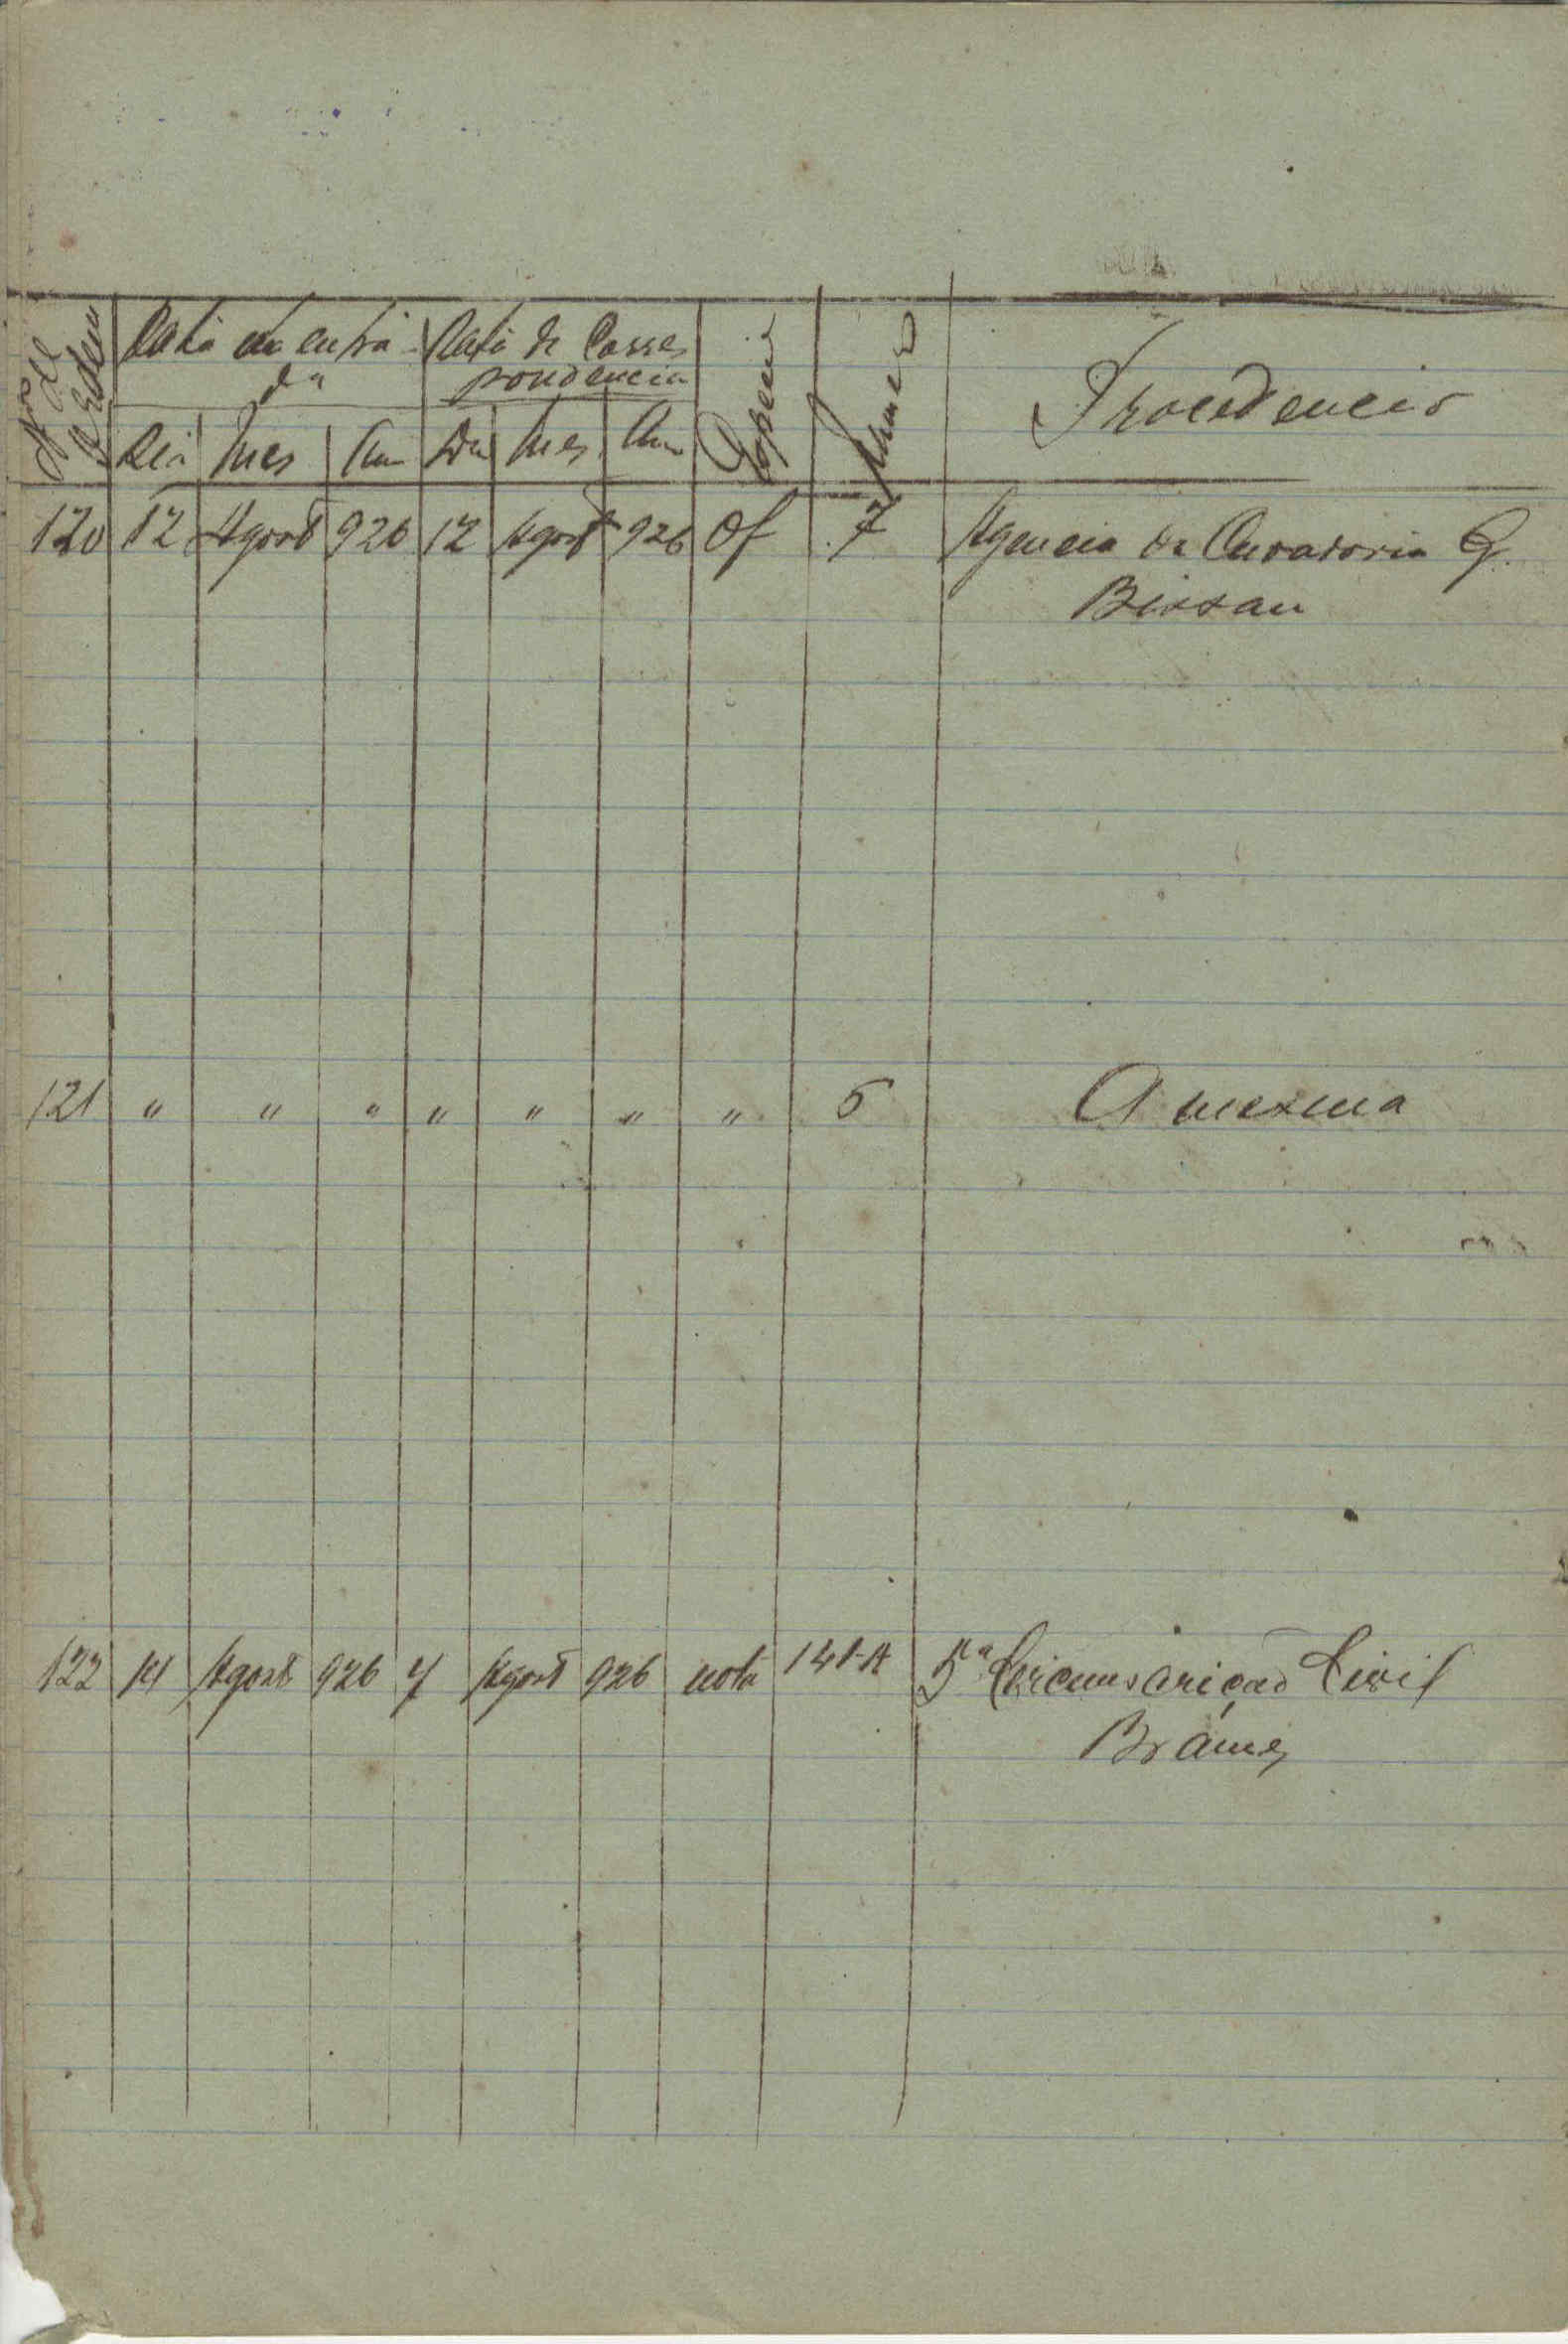 Nro de Ordem
Data da entra
da
Data de Corres
pondencia
Especie
Numero
Procedencia
Dia Mes Ano Dia Mes Ano
120 12 Agosto 926 12 Agosto 926 Of 7 Agencia da Curadoria G.
Bissau
121 " " " " " " " 5 A mesma
122 14 Agosto 926 7 Agosto 926 nota 141-A 5ª Circunscrição Civil
Brámes